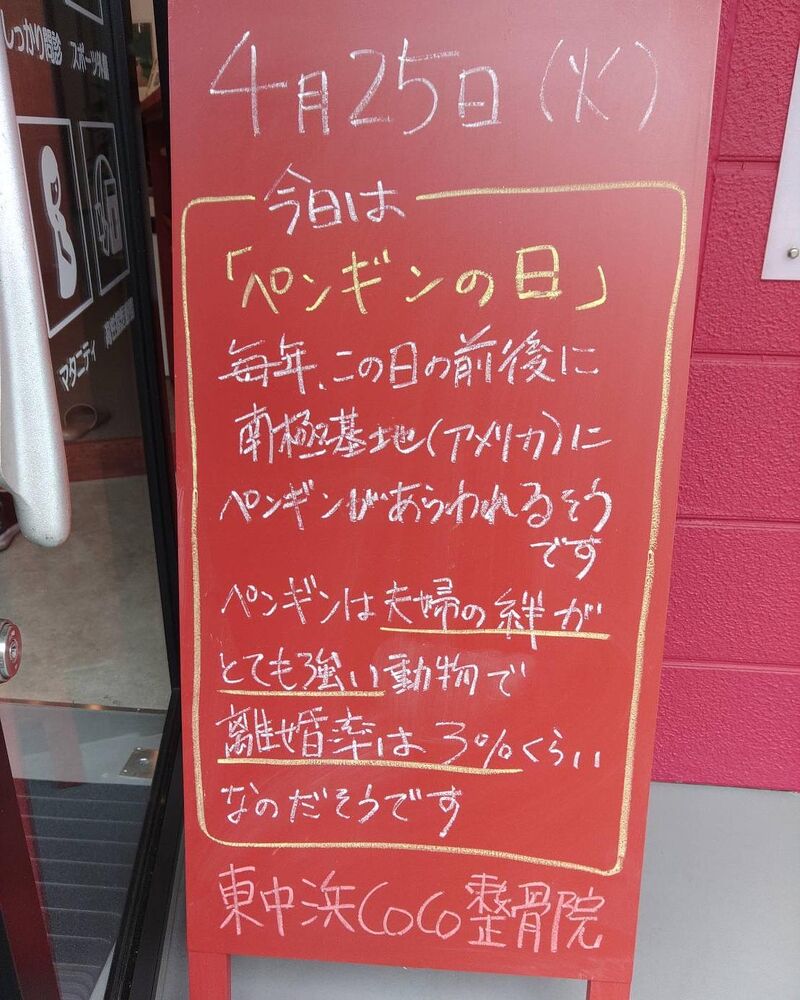 しっかり問診 スポーツ外傷
マタニティ
4月25日(火)
今日は
「ペンギンの日」
毎年、この日の前後に
南極基地(アメリカ)に
ペンギンがあらわれるそう
です
ペンギンは夫婦の絆が
とても強い動物で
離婚率は3%くらい
なのだそうです
東中浜COCO整骨院